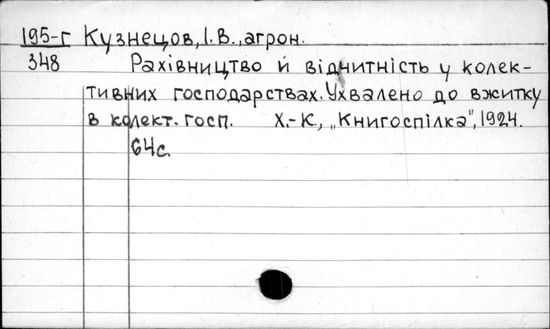 195-г Кузнецов, І. В., агрон.
348 Рахівництво й віднитність у колек-
тивних господарствах. Ухвалено до вжитку
в колект. госп. Х.-К., „Книгоспілка", 1924.
64с.